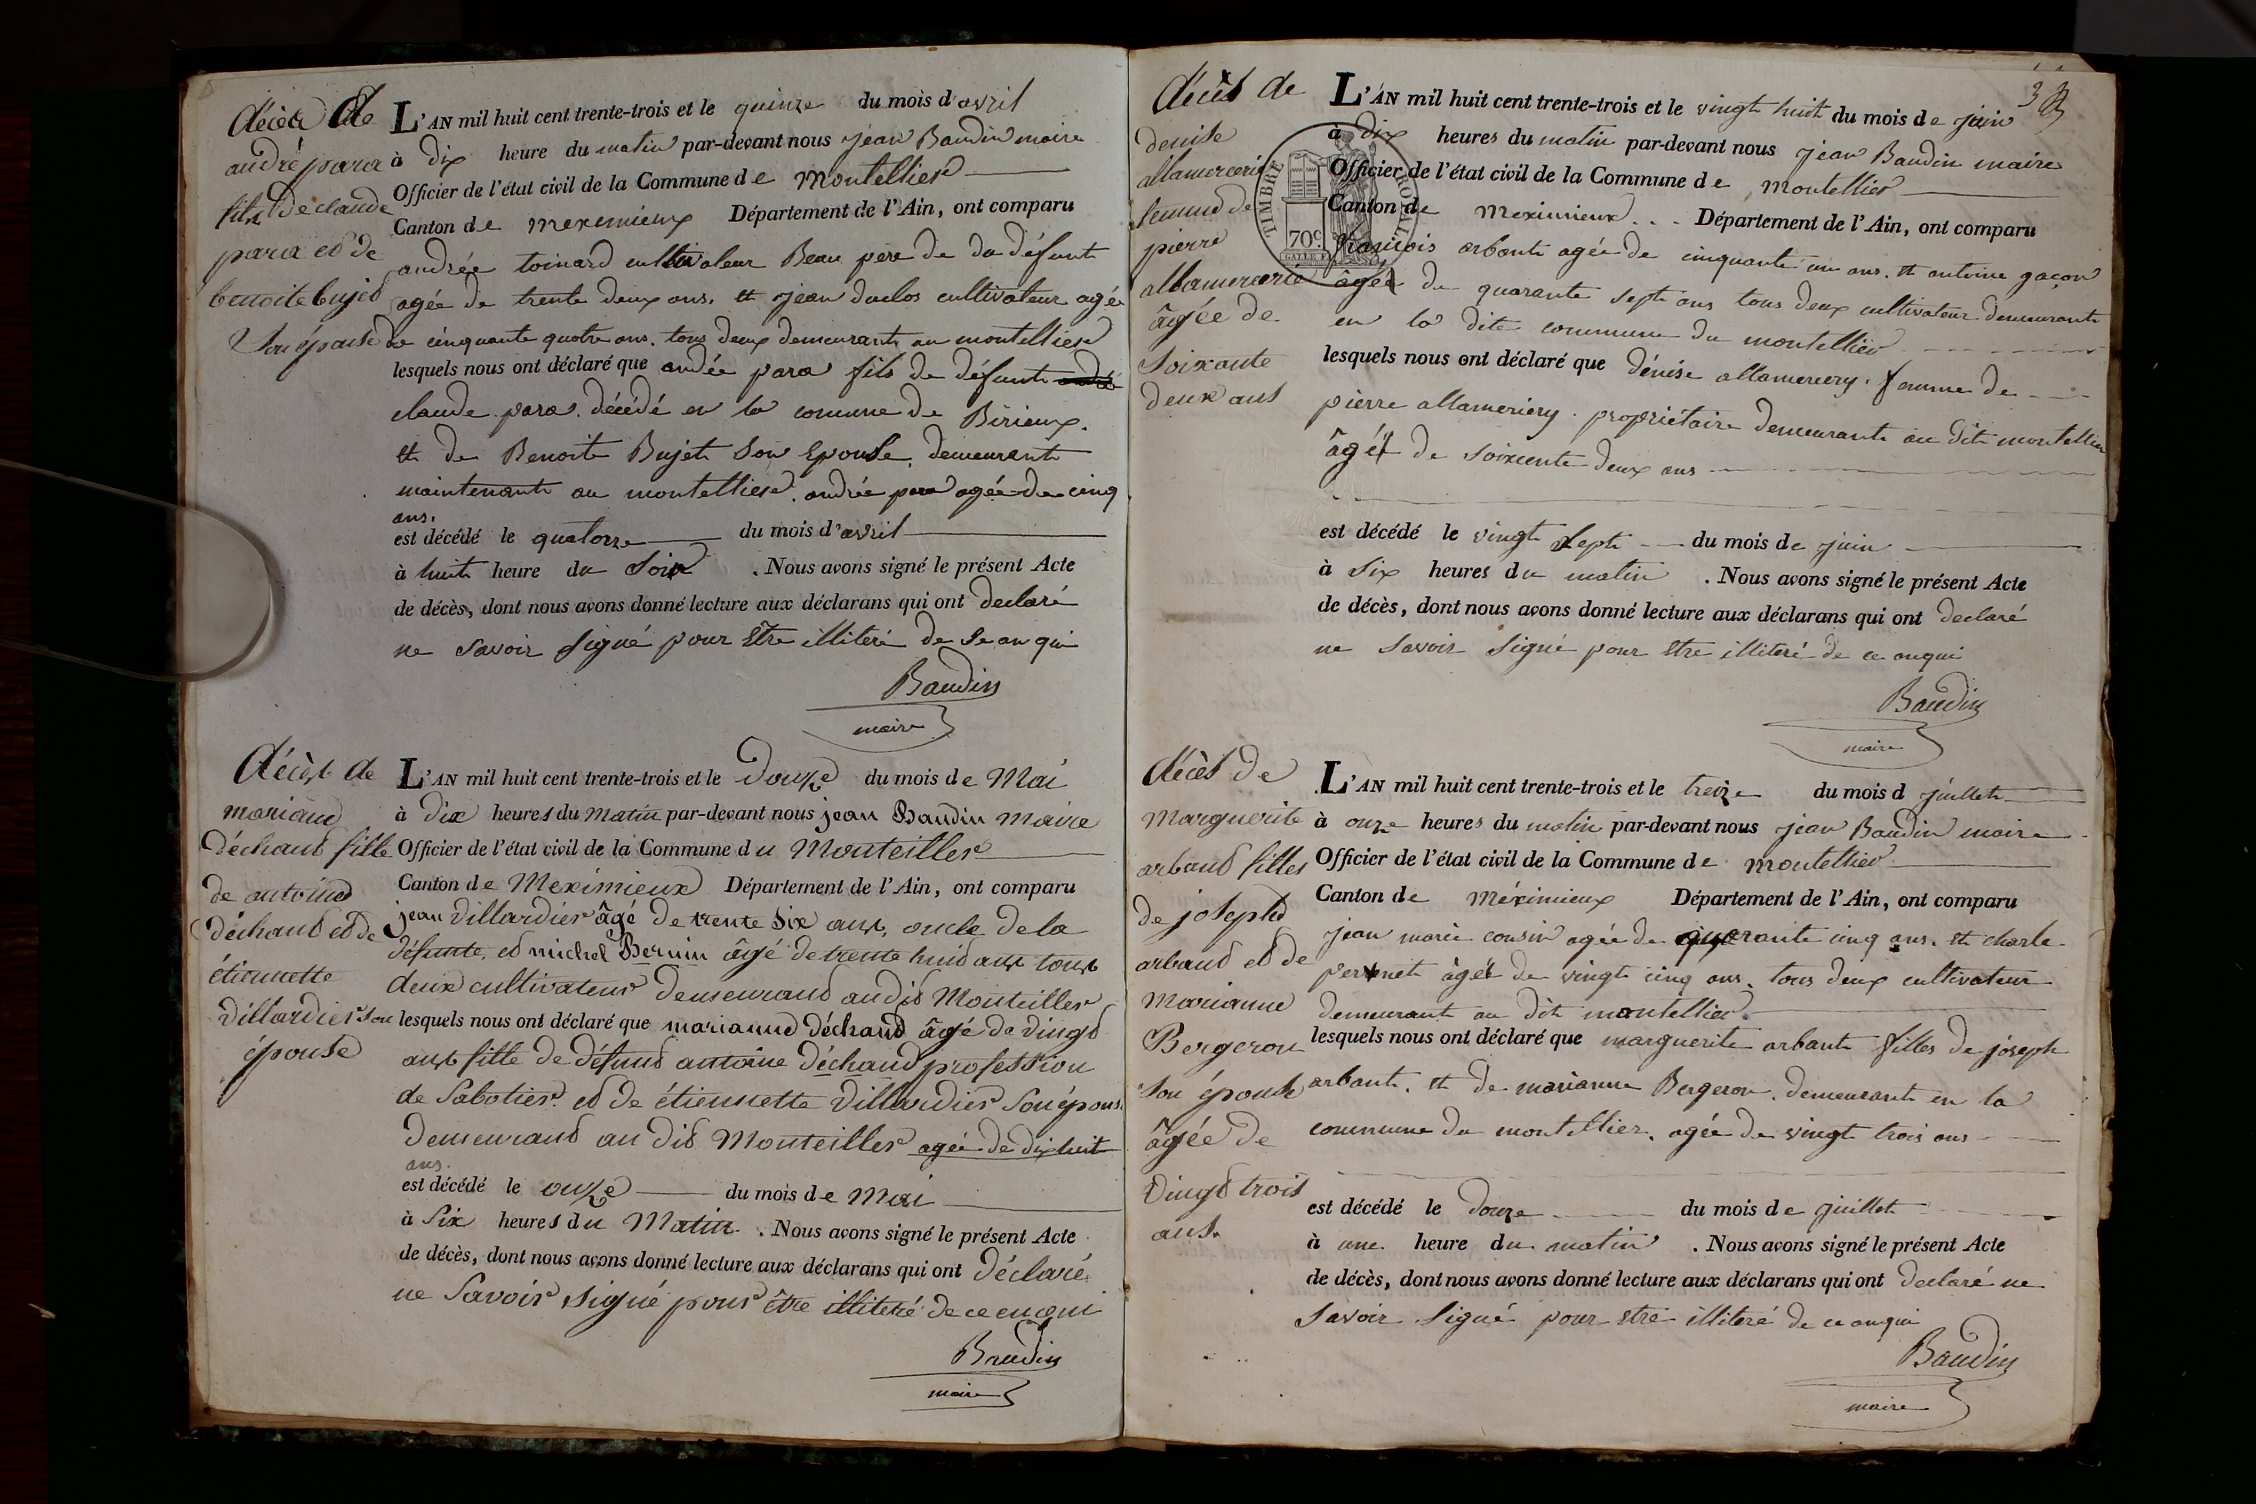 décès de
andré para
fils de claude
para et de
benoite bujet
son épouse
L'AN mil huit cent trente-trois et le quinze du mois d'avril
à dix heure du matin par-devant nous jean Baudin maire
Officier de l'état civil de la Commune de montellier
Canton de meximieux Département de l'Ain, ont comparu
andrée toinard cultivateur Beau père de du défunt
agée de trente deux ans. et jean duclos cultivateur agée
de cinquante quatre ans. tous deux demeurant au montellier
lesquels nous ont déclaré que andée para fils de défunt
claude para. décédé en la comune de Birieux.
et de Benoite Bujet son Epouse, demeurant
maintenant au montellier. andrée para agée de cinq
ans.
est décédé le quatorze du mois d'avril
à huit heure du soir . Nous avons signé le présent Acte
de décès, dont nous avons donné lecture aux déclarans qui ont declaré
ne savoir signé pour être illiteré de se anqui
Baudin
maire
décès de
mariane
déchaud fille
de antoine
déchaud et de
étiennette
Villardier son
épouse
L'AN mil huit cent trente-trois et le Douze du mois de Mai
à Dix heures du Matin par-devant nous jean Baudin Maire
Officier de l'état civil de la Commune du Monteiller
Canton de Meximieux Département de l'Ain, ont comparu
jean Villardier âgé de trente six ans, oncle de la
défunte, et michel Bernin âgé de trente huit ans tous
deux cultivateur Demeurand au dit Monteiller
lesquels nous ont déclaré que marianne déchaud âgé de vingt
ans fille de défunt antoine déchaud profession
de Sabotier. et de étiennette Villardier son épouse
Demeurand au dit Monteiller agée de dix huit
ans.
est décédé le onze du mois de Mai
à Six heures du Matin . Nous avons signé le présent Acte
de décès, dont nous avons donné lecture aux déclarans qui ont déclaré
ne Savoir signé pour être illiteré de ce enqui
Baudin
maire
3
décès de
denise
allamercerie
femme de
pierre
allamercerie
âgée de
soixante
deux ans
TIMBRE ROYAL
70c
L'AN mil huit cent trente-trois et le vingt huit du mois de juin
à dix heures du matin par-devant nous jean Baudin maire
Officier de l'état civil de la Commune de montellier
Canton de meximieux Département de l'Ain, ont comparu
françois arbant agée de cinquante un ans. et antoine gaçon
âgée de quarante sept ans tous deux cultivateur demeurant
en la dite commune du montellier
lesquels nous ont déclaré que dénise allamercery. femme de
pierre allameriery. propriétaire demeurante au dit montellier
âgée de soixente deux ans
est décédé le vingt sept du mois de juin
à six heures du matin . Nous avons signé le présent Acte
de décès, dont nous avons donné lecture aux déclarans qui ont declaré
ne savoir signé pour être illiteré de ce anqui
Baudin
maire
décès de
Marguerite
arbaud filles
de joseph
arbaud et de
Marianne
Bergeron
son épouse
âgée de
vingt trois
ans.
L'AN mil huit cent trente-trois et le treize du mois d juillet
à onze heures du matin par-devant nous jean Baudin maire
Officier de l'état civil de la Commune de montellier
Canton de méximieux Département de l'Ain, ont comparu
jean marie cousin agée de quarante cinq ans. et charle
pernet âgée de vingt cinq ans. tous deux cultivateur
demeurant au dit montellier.
lesquels nous ont déclaré que marguerite arbant filles de joseph
arbant. et de marianne Bergeron. demeurant en la
commune du montellier. agée de vingt trois ans
est décédé le Douze du mois de juillet
à une heure du matin . Nous avons signé le présent Acte
de décès, dont nous avons donné lecture aux déclarans qui ont declaré ne
savoir signé pour être illiteré de ce anqui
Baudin
maire